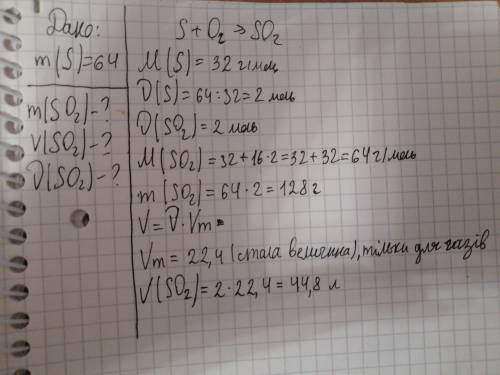 Дано:
m(S)=64
m(SO₂)-?
V(SO₂)-?
ν(SO₂)-?
S+O₂→SO₂
M(S)=32 г/моль
ν(S)=64:32=2 моль
ν(SO₂)=2 моль
M(SO₂)=32+16·2=32+32=64 г/моль
m(SO₂)=64·2=128 г
V=ν·Vm
Vm=22,4 (стала величина), тільки для газів
V(SO₂)=2·22,4=44,8 л